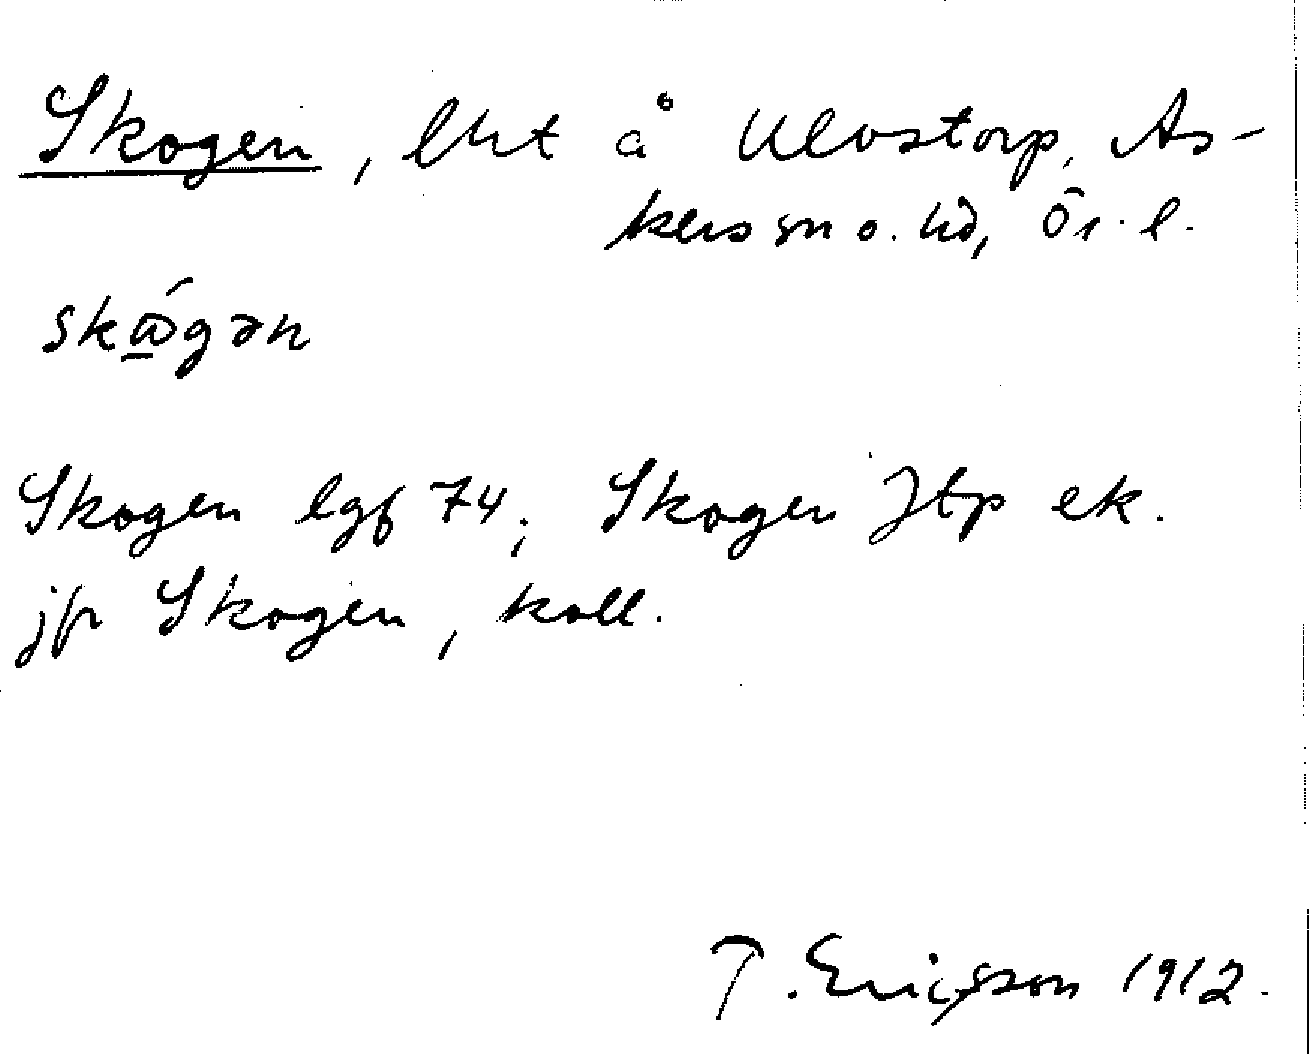 Skogen, lht å Ulvstorp, As-
kers sn o. hd, Ör. l.
skɷ̲́gən
Skogen lgf 74; Skogen Jtp ek.
jfr Skogen, koll.
T. Ericsson 1912.